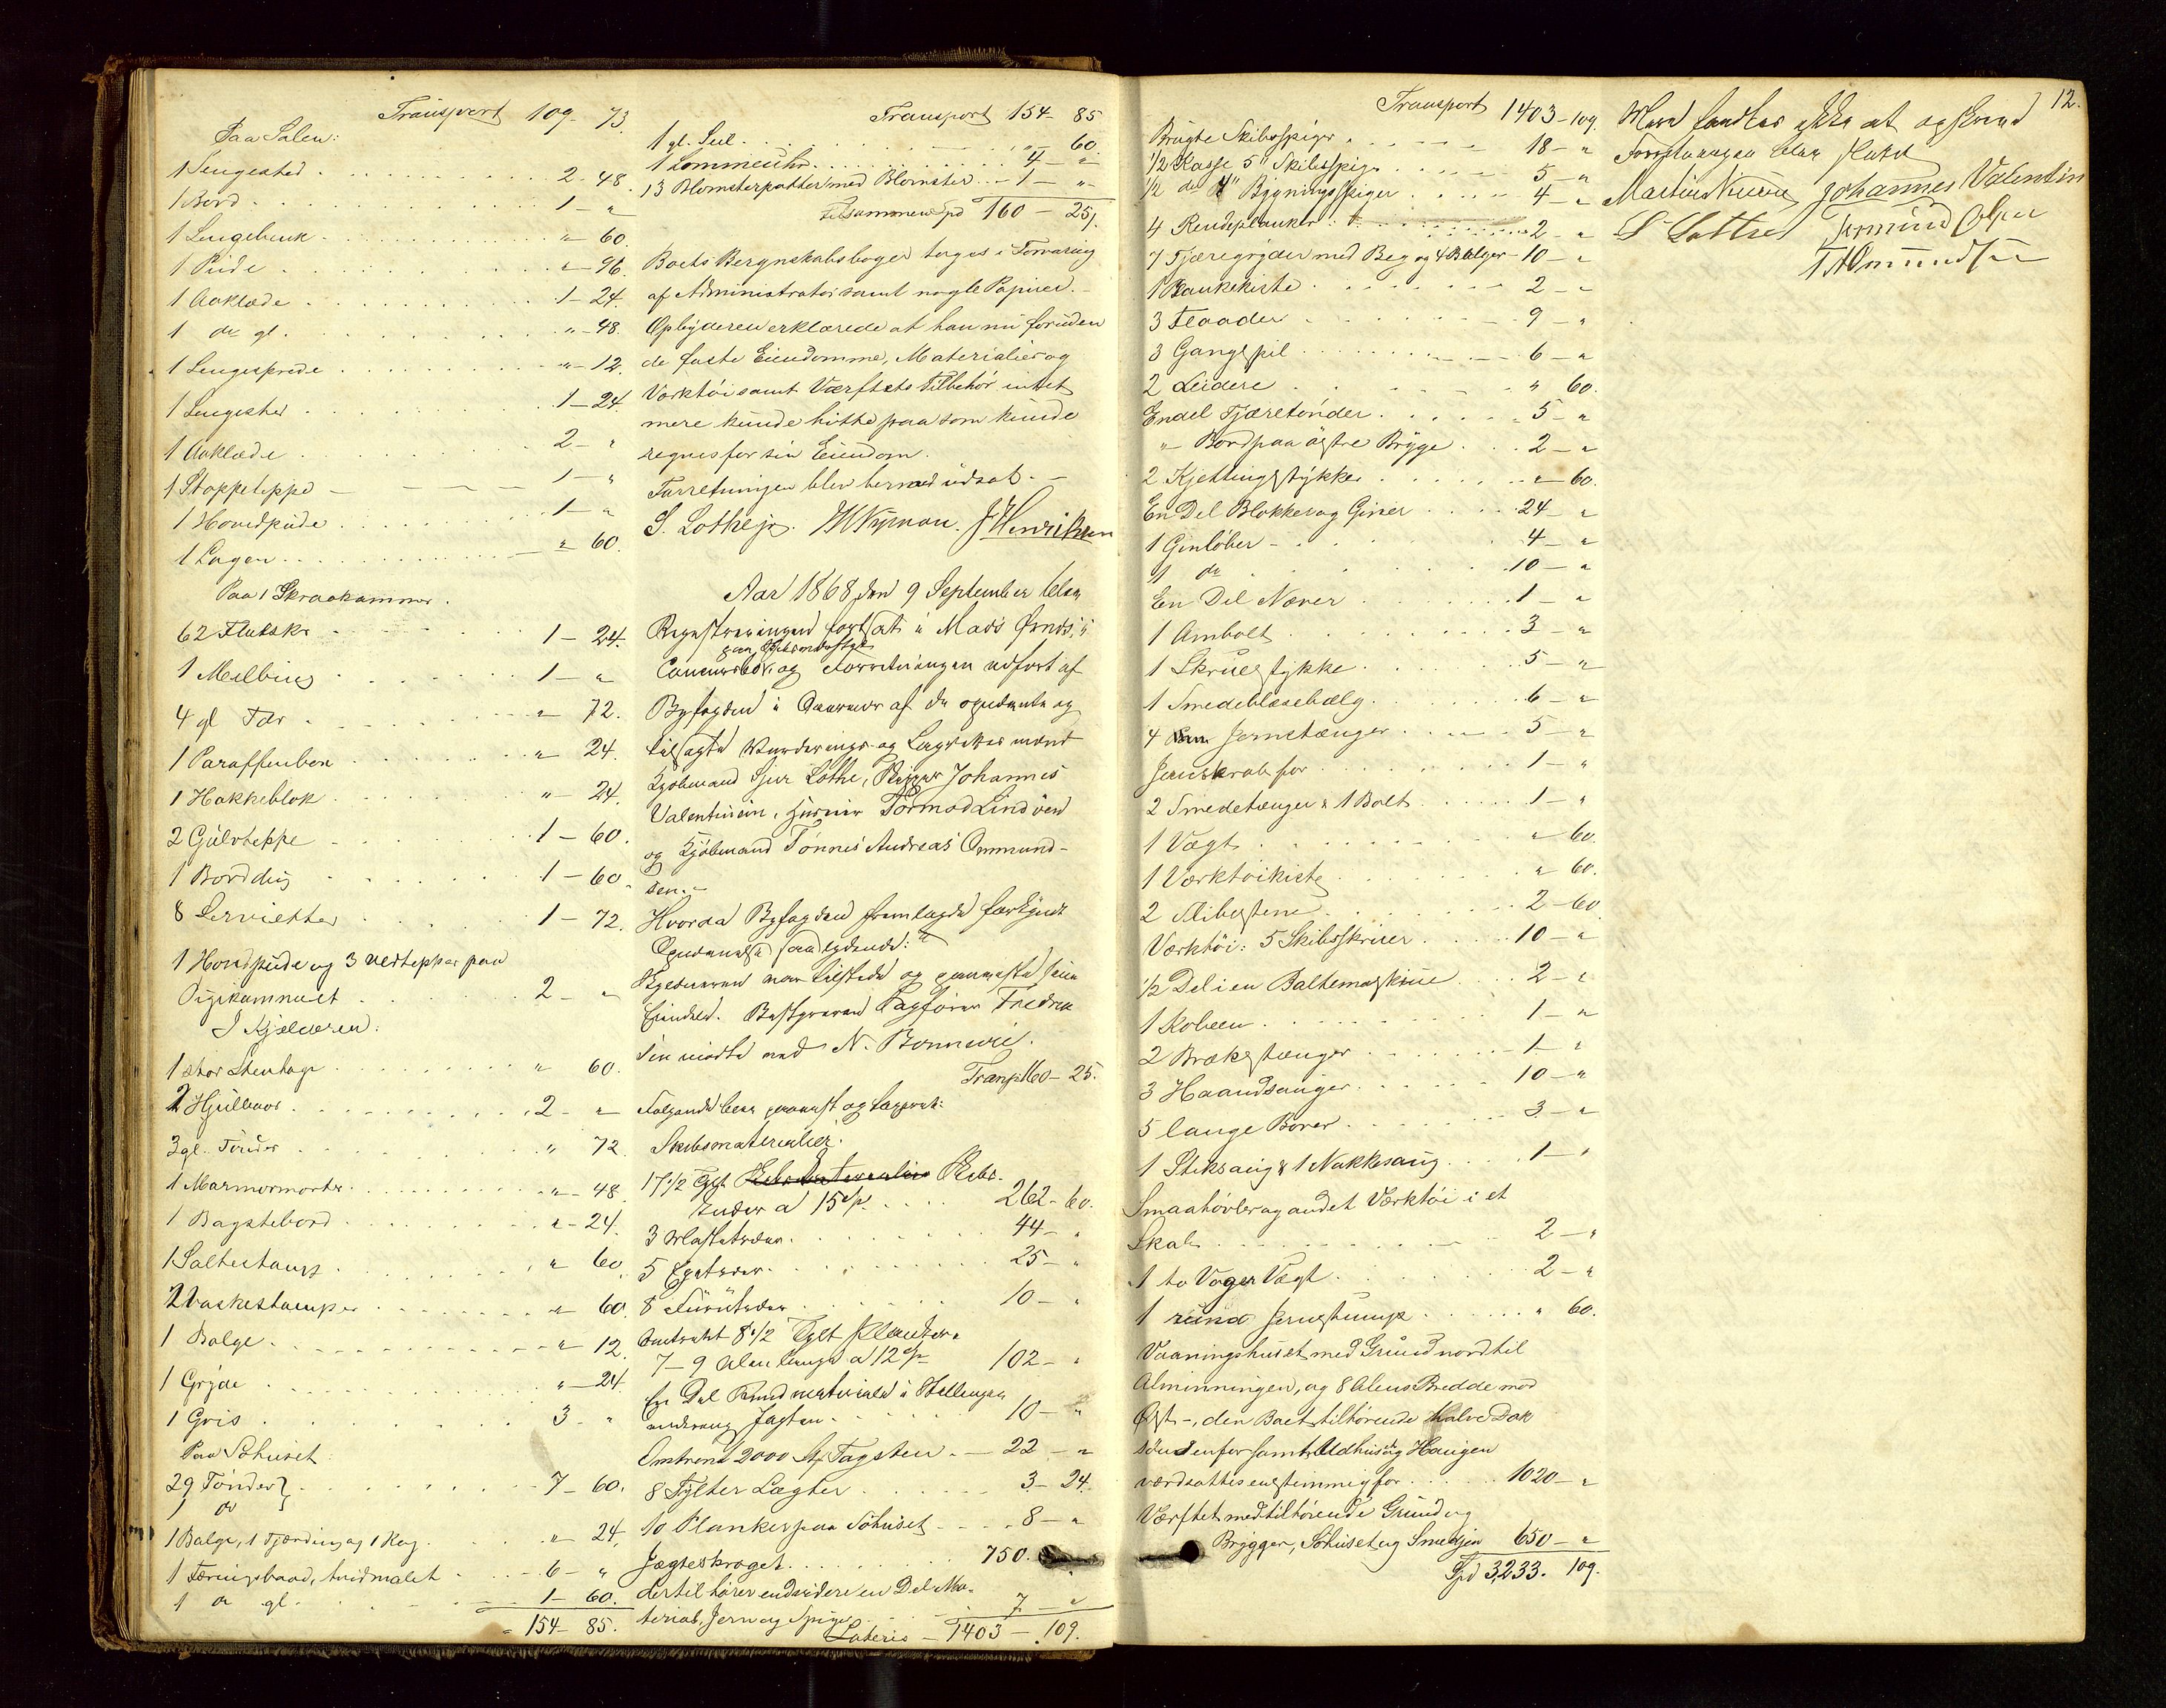 Transport 109 - 73.
Paa Salen:
1 Sengested 2 - 48.
1 Bord 1 - "
1 Sengebenk " - 60.
1 Pude " - 96.
1 Aaklæde 1 - 24.
1 do gl. " - 48.
1 Sengesprede " - 12.
1 Sengested 1 - 24.
1 Aaklæde 2 - "
1 Stoppeteppe 1 - "
1 Hovedpude 1 - "
1 Lagen " - 60.
Paa 1 Skraakammer.
62 Flasker 1 - 24.
1 Melbing 1 - "
4 gl. Fade " 72.
1 Paraffenben " 24.
1 Hakkeblok " - 24.
2 Gulvteppe 1 - 60.
1 Borddug 1 - 60.
8 Servietter 1 - 72.
1 Hovedpude og 3 vedtepper paa
Pigekammeret 2 - "
I Kjælderen:
1 stor Stentøy " 60.
2 Hjulbaar 2 - "
3 gl. Tønder " 72
1 Marmormorter " - 48
1 Bagstebord " - 24.
1 Saltestamp " 60.
2 Vaskestamper " 60.
1 Balge " 12.
1 Gryde " - 24.
1 Gris 3 - "
Paa Søhuset
29 Tønder }
1 do } 7 - 60.
1 Balge, 1 Fjærding og 1 Kag " 24.
1 Færingsbaad, hvidmalet 6 - "
1 do gl. 1 - 60.
154 - 85.
Transport 154 - 85
1 gl. Seil " 60.
1 Lommeuhr 4 - "
13 Blomsterpotter med Blomster 1 - "
Tilsammen Spd 160 - 25.
Boets Regnskabsboger toges i Forvaring
af Administrator samt nogle Papirer. -
Opbyderen erklærede at han nu foruden
de faste Eiendomme, Materialier og
Værktøi samt Værftets Tilbehør intet
mere kunde hitte paa som kunde
regnes for sin Eiendom.
Forretningen blev hermed udsat. -
S. Lothe jr. H Nyman. J Henriksen
Aar 1868 den 9 September blev
Registreringen fortsat i Mads Ørnds
Concursbo og Forretningen udført af
Byfogden i Nærvær af de opnævnte og
tilsagte Vurderings og Lagrettes mænd
Kjøbmand Sjur Lothe, Rigger Johannes
Valentinsen, Tormod Lindøen
og Kjøbmand Tønnes Andreas Ommund-
sen. -
Hvorda Byfogden fremlagde forkyndt
Opnævnelse saalydende:
Opbyderen var tilstede og paaviste sine
Eiendele. Bestyreren Sagfører Fredrik
sen mødte med N. Bonnevie.
Transp 160 - 25.
Følgende blev paavist og taxeret:
Skibsmaterialier.
17 1/2 Tylt Ribs.
Træer a 15 Spd. 262 - 60.
3 Mastetræer 44 - "
5 Egetræer 25 - "
8 Furutræer 10 - "
Omtrent 8 1/2 Tylt Planker
7 - 9 Alen lange a 12 Spd 102 - "
En Del Rundmateriale i Stellingen
omkring Jagten 10 - "
Omtrent 2000 St Tagsten 22 - "
8 Tylter Lægter 3 - 24.
10 Planker paa Søhuset 8 - "
Jægteskroget 750.
dertil hører endvidere en Del Ma-
terial, Jern og Spiger 7 - "
Lateris - 1403 - 109.
Transport 1403 - 109.
Brugte Skibsspiger 18 - "
1/2 Kasse 5" Skibsspiger 5 - "
1/2 do 4" Bygningsspiger 4 - "
4 Rendeplanker 2 - "
7 Tjæregryder med Beg og 4 Balger - 10 - "
1 Bankekiste 2 - "
3 Flaader 9 - "
3 Gangspil 6 - "
2 Leidere " 60.
Endel Tjæretønder 5 - "
" Bord paa østre Brygge 2 - "
2 Kjettingstykker " - 60.
En Del Blokker og Giner 24 - "
1 Ginløber 4 - "
1 do 10 - "
En Del Næver 1 - "
1 Ambolt 3 - "
1 Skruestykke 5 - "
1 Smedeblæsebælg 6 - "
4 Jerntænger 5 - "
Jernskrab for 1 - "
2 Smedetænger & 1 Bolt 1 - "
1 Vægt " 60.
1 Værktøikiste " 60.
2 Slibestene 2 - 60
Værktøi: 5 Skibsskruer 10 - "
1/2 Del i en Boltemaskine 2 - "
1 Kobeen 1 - "
2 Brækstænger 1 - "
3 Haandsauger 10 - "
5 lange Borer 3 - "
1 Stiksaug & 1 Nakkesaug 1 - "
Smaahøvler og andet Værktøi i et
Skab 2 - "
1 to Voger Vægt 2 - "
1 rund Jernstump " 60.
Vaaningshuset med Grund nord til
Alminningen, og 8 Alens Bredde mod
Øst -, den Boet tilhørende Halve Dok
søndenfor samt Uldhus og Haugen
værdsattes enstemmig for 1020 - "
Værftet med tilhørende Grund og
Brygger, Søhuset og Smedjen 650 - "
Spd 3,233. 109.
12.
Mere fandtes ikke at opskrive
Forretningen blev sluttet
Martin Nissen Johannes Valentin
S Lothe Tormod Olsen
T A Ommundsen